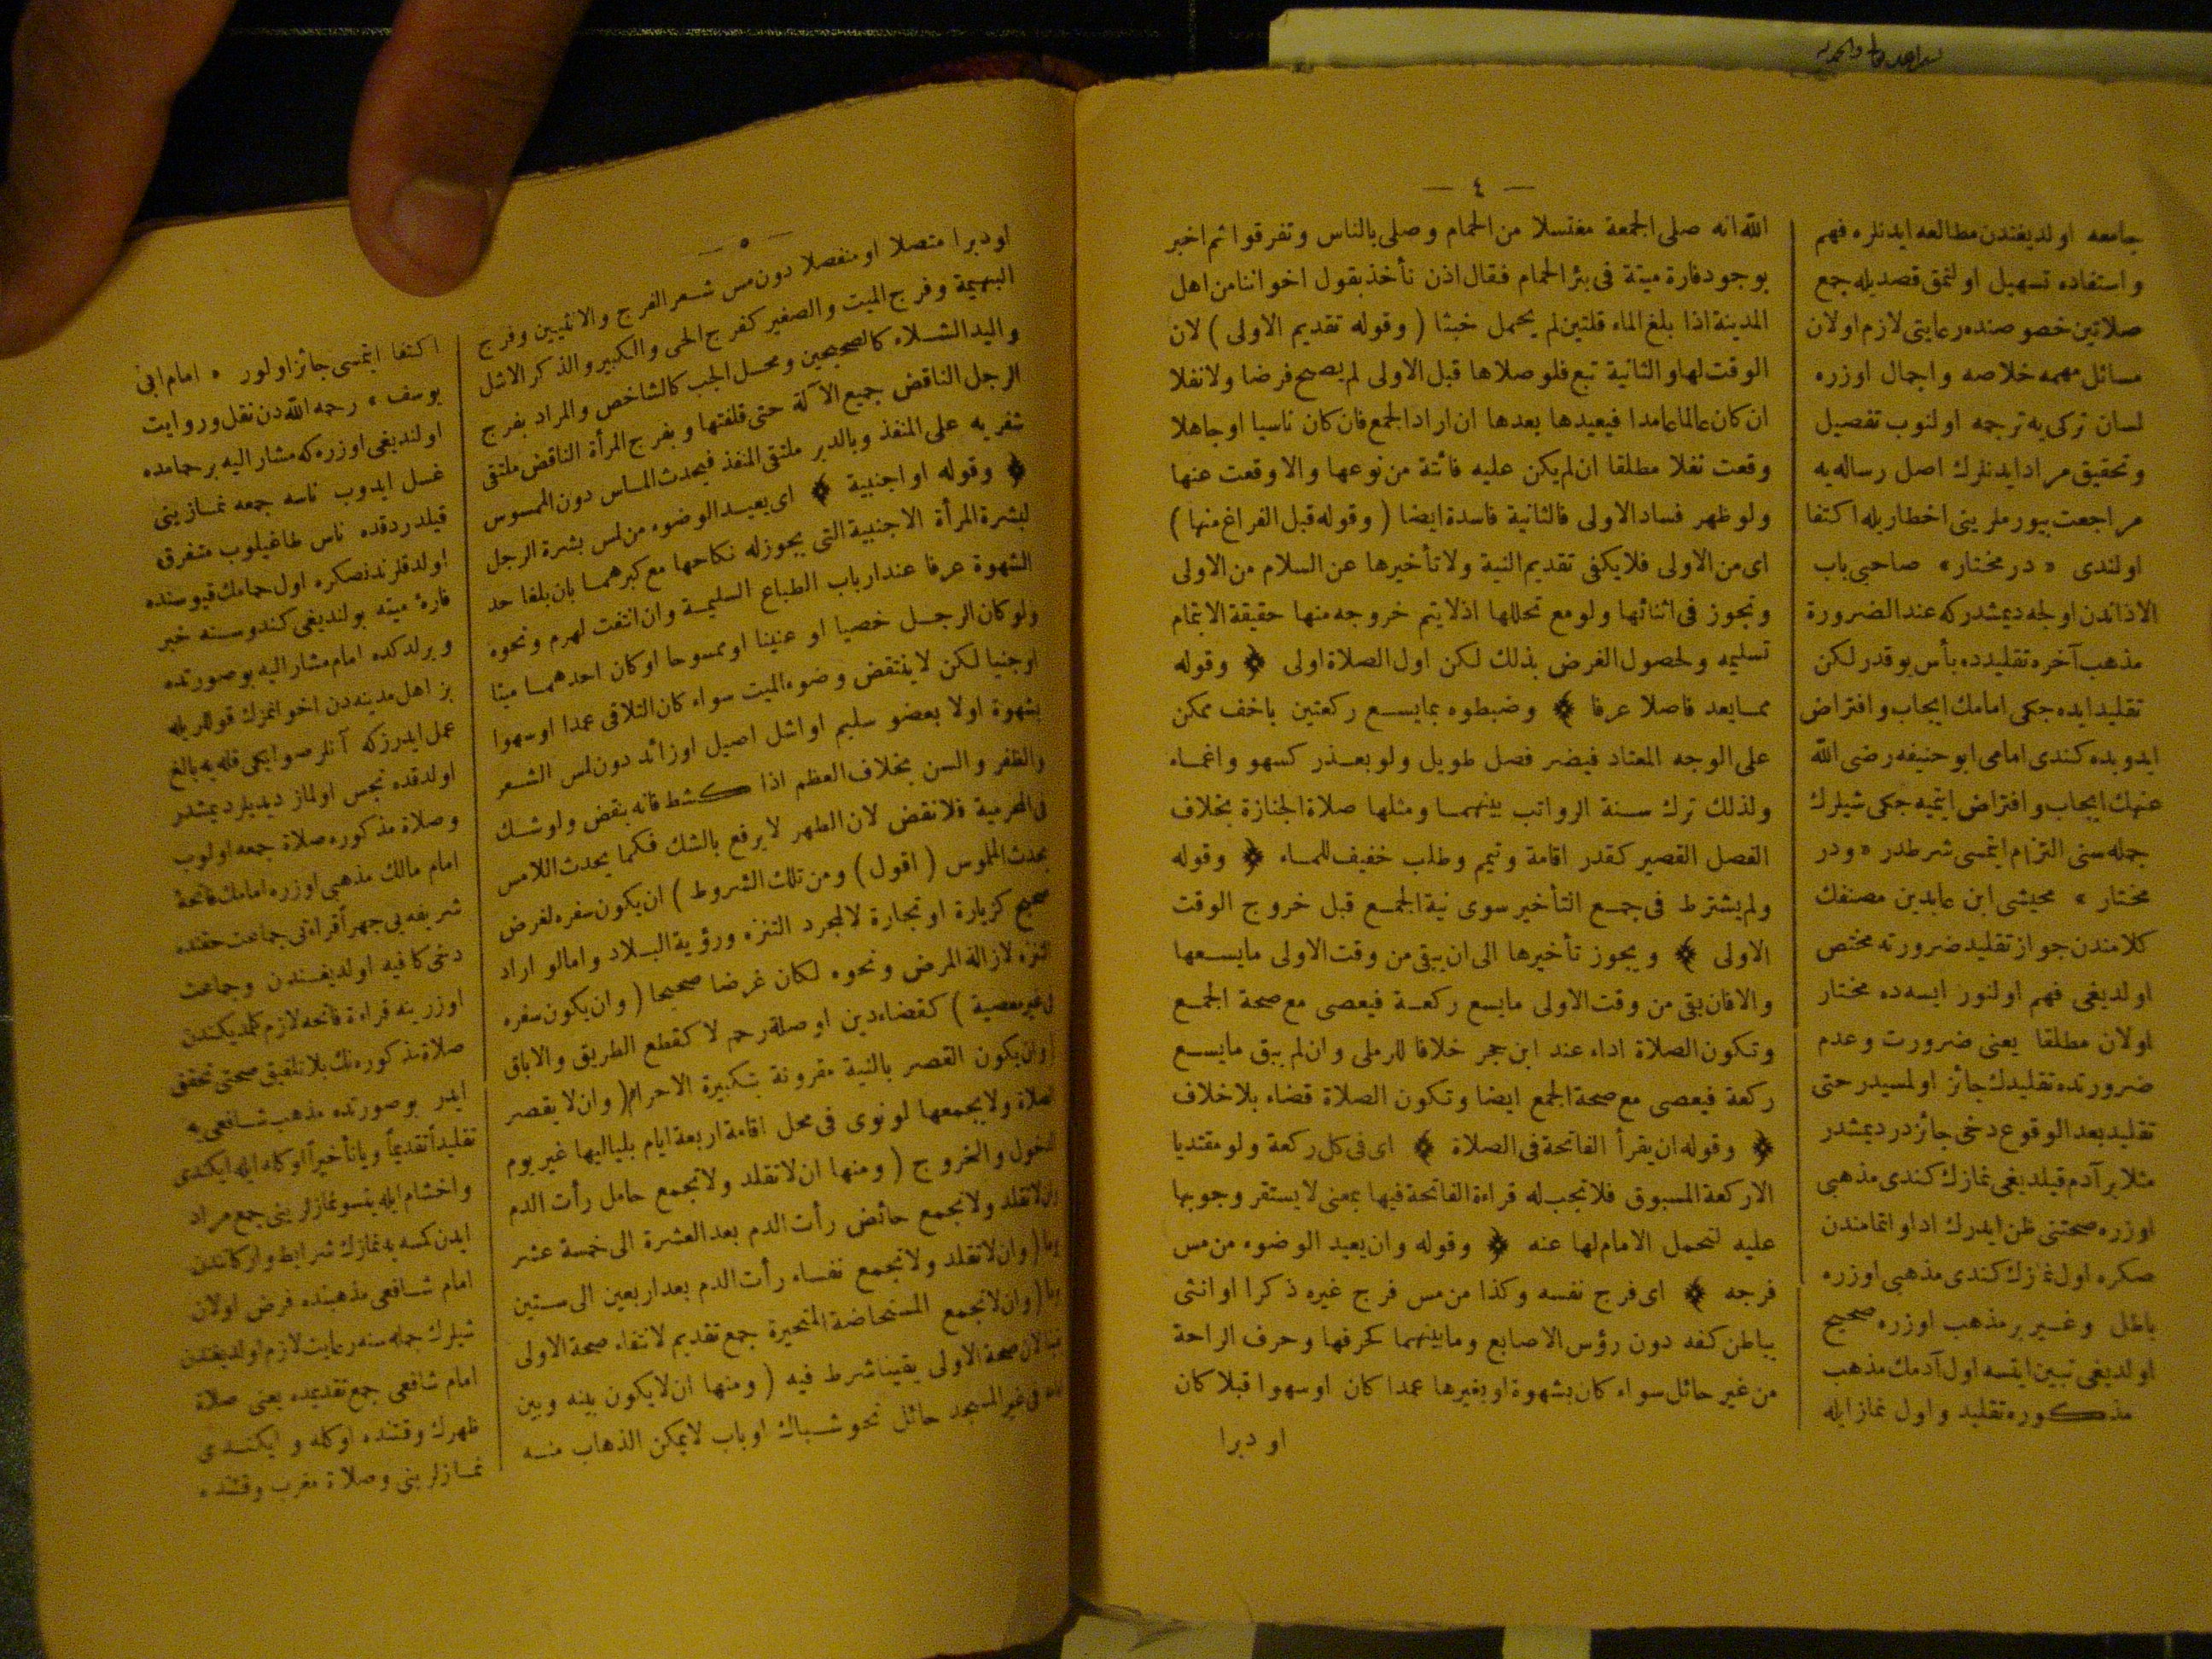 — ٤ —
جامعه اولديغندن مطالعه ايدنلره فهم
و استفاده تسهيل اولنمق قصديله جمع
صلاتين خصوصنده رعايتى لازم اولان
مسائل مهمه خلاصه و اجمال اوزره
لسان تركى يه ترجمه اولنوب تفصيل
و تحقيق مراد ايدنلرك اصل رساله يه
مراجعت بيورملرينى اخطار يله اكتفا
اولندى « در مختار » صاحبى باب
الاذاندن اولجه ديمشدركه عند الضرورة
مذهب آخره تقليدده بأس يوقدر لكن
تقليد ايده جكى امامك ايجاب و افتراض
ايدوبده كندى امامى ابو حنيفه رضى الله
عنهك ايجاب و افتراض ايتميه جكى شيلرك
جمله سنى التزام ايتمسى شرطدر « ودر
مختار » محيشى ابن عابدين مصنفك
كلامندن جواز تقليد ضرورته مختص
اولديغى فهم اولنور ايسه ده مختار
اولان مطلقا يعنى ضرورت وعدم
ضرورتده تقليدك جائز اولمسيدر حتى
تقليد بعد الوقوع دخى جائزدر ديمشدر
مثلا بر آدم قيلديغى نمازك كندى مذهبى
اوزره صحتنى ظن ايدرك ادا و اتمامندن
صكره اول نمازك كندى مذهبى اوزره
باطل وغير بر مذهب اوزره صحيح
اولديغى تبين ايتسه اول آدمك مذهب
مذكوره تقليد و اول نماز ايله
الله انه صلى الجمعة مغتسلا من الحمام وصلى بالناس وتفرقوا ثم اخبر
بوجود فارة ميتة فى بئر الحمام فقال اذن نأخذ بقول اخواننا من اهل
المدينة اذا بلغ الماء قلتين لم يحمل خبثا ( وقوله تقديم الاولى ) لان
الوقت لها والثانية تبع فلو صلاها قبل الاولى لم يصح فرضا ولا نفلا
ان كان عالما عامدا فيعيدها بعدها ان اراد الجمع فان كان ناسيا او جاهلا
وقعت نفلا مطلقا ان لم يكن عليه فائتة من نوعها والا وقعت عنها
ولو ظهر فساد الاولى فالثانية فاسدة ايضا ( وقوله قبل الفراغ منها )
اى من الاولى فلا يكفى تقديم النية ولا تأخيرها عن السلام من الاولى
وتجوز فى اثنائها ولو مع تحللها اذ لا يتم خروجه منها حقيقة الا بتمام
تسليمه ولحصول الغرض بذلك لكن اول الصلاة اولى ﴿ وقوله
مما يعد فاصلا عرفا ﴾ وضبطوه بما يسع ركعتين باخف ممكن
على الوجه المعتاد فيضر فصل طويل ولو بعذر كسهو واغماء
ولذلك ترك سنة الرواتب بينهما ومثلها صلاة الجنازة بخلاف
الفصل القصير كقدر اقامة وتيمم وطلب خفيف للماء ﴿ وقوله
ولم يشترط فى جمع التأخير سوى نية الجمع قبل خروج الوقت
الاولى ﴾ ويجوز تأخيرها الى ان يبقى من وقت الاولى ما يسعها
والا فان بقى من وقت الاولى ما يسع ركعة فيعصى مع صحة الجمع
وتكون الصلاة اداء عند ابن حجر خلافا للرملى وان لم يبق ما يسع
ركعة فيعصى مع صحة الجمع ايضا وتكون الصلاة قضاء بلا خلاف
﴿ وقوله ان يقرأ الفاتحة فى الصلاة ﴾ اى فى كل ركعة ولو مقتديا
الا ركعة المسبوق فلا تجب له قراءة الفاتحة فيها بمعنى لا يستقر وجوبها
عليه لتحمل الامام لها عنه ﴿ وقوله وان يعيد الوضوء من مس
فرجه ﴾ اى فرج نفسه وكذا من مس فرج غيره ذكرا او انثى
بباطن كفه دون رؤس الاصابع وما بينهما كحرفها وحرف الراحة
من غير حائل سواء كان بشهوة او بغيرها عمدا كان او سهوا قبلا كان
او دبرا
— ٥ —
او دبرا متصلا او منفصلا دون مس شعر الفرج والانثيين وفرج
البهيمة وفرج الميت والصغير كفرج الحى والكبير والذكر الاشل
واليد الشلاء كالصحيحين ومحل الجب كالشاخص والمراد بفرج
الرجل الناقض جميع الآلة حتى قلفتها وبفرج المرأة الناقض ملتقى
شفريه على المنفذ وبالدبر ملتقى المنفذ فيحدث الماس دون الممسوس
﴿ وقوله او اجنبية ﴾ اى يعيد الوضوء من لمس بشرة الرجل
لبشرة المرأة الاجنبية التى يجوز له نكاحها مع كبرهما بان بلغا حد
الشهوة عرفا عند ارباب الطباع السليمة وان انتفت لهرم ونحوه
ولو كان الرجل خصيا او عنينا او ممسوحا او كان احدهما ميتا
او جنيا لكن لا ينتقض وضوء الميت سواء كان التلاقى عمدا او سهوا
بشهوة اولا بعضو سليم او اشل اصيل او زائد دون لمس الشعر
والظفر والسن بخلاف العظم اذا كشط فانه ينقض ولو شك
فى المحرمية فلا نقض لان الطهر لا يرفع بالشك فكما يحدث اللامس
يحدث الملموس ( اقول ) ومن تلك الشروط ) ان يكون سفره لغرض
صحيح كزيارة او تجارة لا لمجرد التنزه ورؤية البلاد واما لو اراد
التنزه لازالة المرض ونحوه لكان غرضا صحيحا ( وان يكون سفره
فى غير معصية ) كقضاء دين او صلة رحم لا كقطع الطريق والاباق
( وان يكون القصر بالنية مقرونة بتكبيرة الاحرام ( وان لا يقصر
الصلاة ولا يجمعها لو نوى فى محل اقامة اربعة ايام بلياليها غير يوم
الدخول والخروج ( ومنها ان لا تقلد ولا تجمع حامل رأت الدم
وان لا تقلد ولا تجمع حائض رأت الدم بعد العشرة الى خمسة عشر
يوما ( وان لا تقلد ولا تجمع نفساء رأت الدم بعد اربعين الى ستين
يوما ( وان لا تجمع المستحاضة المتحيرة جمع تقديم لانتفاء صحة الاولى
لان صحة الاولى يقينا شرط فيه ( ومنها ان لا يكون بينه وبين
فى غير المسجد حائل نحو شباك او باب لا يمكن الذهاب منه
اكتفا ايتمسى جائز اولور « امام ابى
يوسف » رحمه الله دن نقل و روايت
اولنديغى اوزره كه مشار اليه بر حمامده
غسل ايدوب ناسه جمعه نمازينى
قيلدردقده ناس طاغيلوب متفرق
اولدقلرندنصكره اول حمامك قيوسنده
فارۀ ميته بولنديغى كندوسنه خبر
ويرلدكده امام مشار اليه بو صورتده
بز اهل مدينه دن اخوانمزك قوللريله
عمل ايدرزكه آنلر صو ايكى قله يه بالغ
اولدقده نجس اولماز ديديلر ديمشدر
و صلاة مذكوره صلاة جمعه اولوب
امام مالك مذهبى اوزره امامك فاتحۀ
شريفه يى جهراً قراءتى جماعت حقنده
دخى كافيه اولديغندن وجماعت
اوزرينه قراءة فاتحه لازم كلمديكندن
صلاة مذكوره نك بلا تلفيق صحتى تحقق
ايدر بو صورتده مذهب شافعى يه
تقليداً تقديماً و يا تأخيراً اوكله ايله ايكندى
و اخشام ايله يتسو نمازلرينى جمع مراد
ايدن كمسه يه نمازك شرايط و اركانندن
امام شافعى مذهبنده فرض اولان
شيلرك جمله سنه رعايت لازم اولديغندن
امام شافعى جمع تقديمده يعنى صلاة
ظهرك وقتنده اوكله و ايكندى
نمازلرينى و صلاة مغرب وقتنده